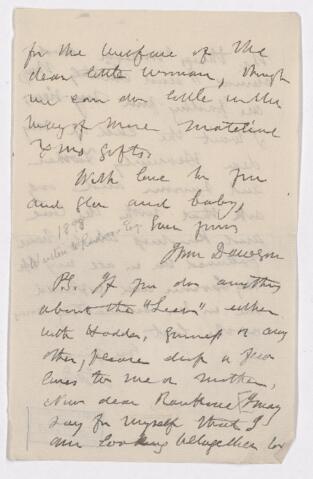 for the welfare of the
dear little woman, though
we can do little in the
way of mere material
Xmas gifts.
With love to you
and glen and baby,
Ever yours
1898
John Dawson
P.S. If you do anything
about the "Leen" either
with Hodder, or any
other, please drop a few
lines to me or mother,
Now dear I may
say for myself that I
am looking altogether for